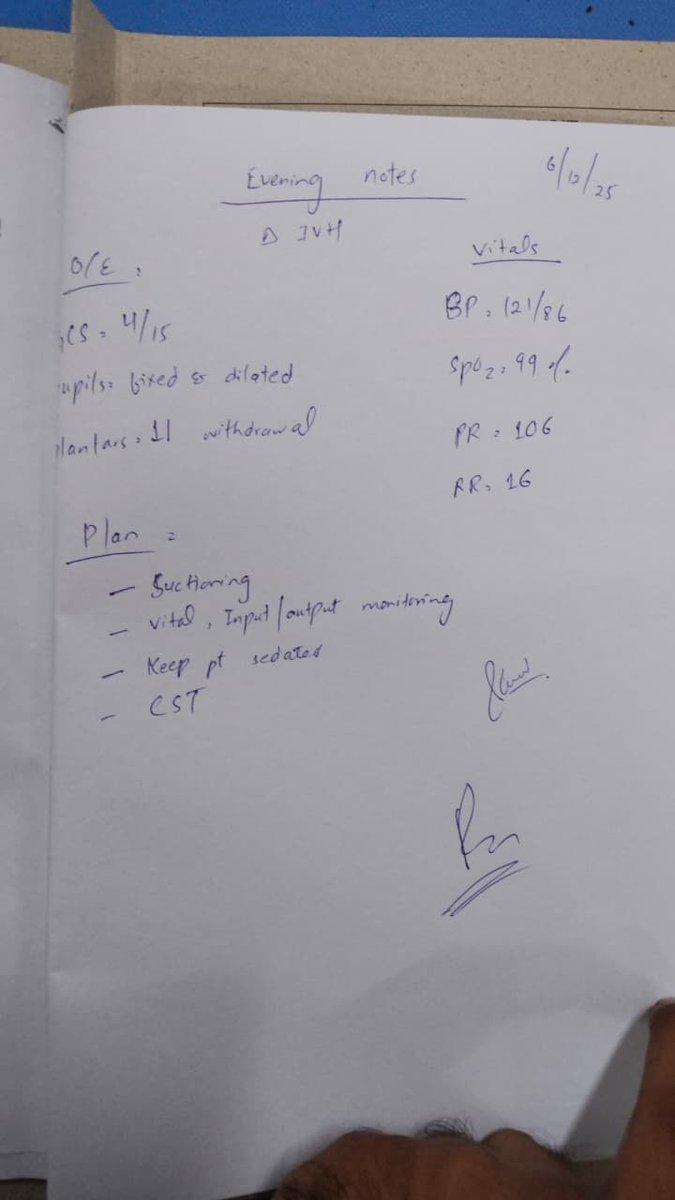 Evening notes
6/12/25
Δ IVH
O/E :
Vitals
GCS = 4/15
BP = 121/86
upils = fixed & dilated
SpO2 = 99 %
lantars = withdrawal
PR = 106
RR = 16
Plan =
- Suctioning
- Vital, Input/output monitoring
- Keep pt sedated
- CST